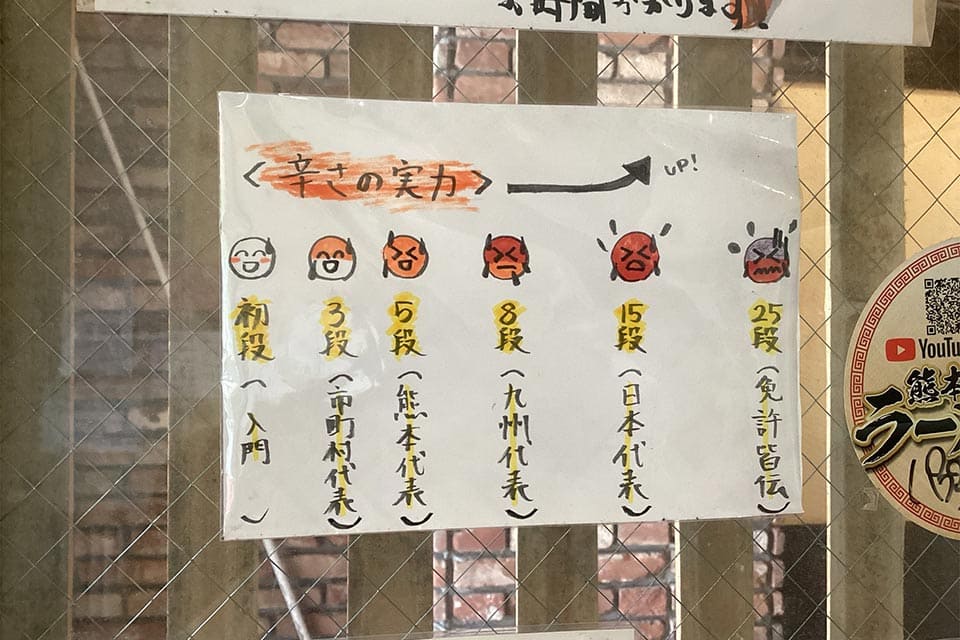 <辛さの実力>
UP!
初段(入門)
3段(市町村代表)
5段(熊本代表)
8段(九州代表)
15段(日本代表)
25段(免許皆伝)
YouTube
熊本
ラー